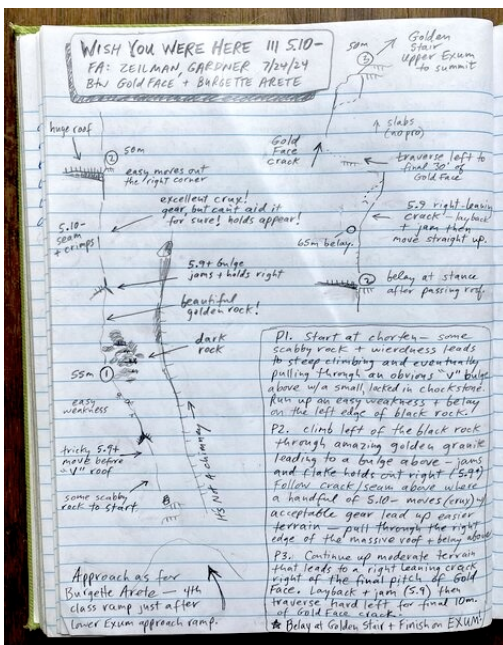 WISH YOU WERE HERE III 5.10-
FA: ZEILMAN, GARDNER 7/24/24
Btw GOLD FACE + BURGETTE ARETE
huge roof
② 50m
easy moves out
the right corner
excellent crux!
gear but cant aid it
for sure! holds appear!
5.10-
seam
+ crimps
5.9+ bulge
jams + holds right
beautiful
golden rock!
dark
rock
55m ①
easy
weakness
tricky 5.9+
move before
"V" roof
some scabby
rock to start
H5 Not A chimney
Approach as for
Burgette Arete — 4th
class ramp just after
lower Exum approach ramp.
50m
③
Golden
Stair
Upper Exum
to summit
slabs
(no pro)
Gold
Face
crack
traverse left to
final 30' of
Gold Face
5.9 right-leaning
crack - layback
+ jam then
move straight up.
65m belay.
② belay at stance
after passing roof.
P1. Start at chorten — some
scabby rock + wierdness leads
to steep climbing and eventually
pulling through an obvious "V" bulge
above w/a small, locked in chockstone.
Run up an easy weakness + belay
on the left edge of black rock.
P2. climb left of the black rock
through amazing golden granite
leading to a bulge above — jams
and flake holds out right (5.9+)
Follow crack/seam above where
a handful of 5.10- moves (crux) w/
acceptable gear lead up easier
terrain — pull through the right
edge of the massive roof + belay above
P3. Continue up moderate terrain
that leads to a right leaning crack
right of the final pitch of Gold
Face. Layback + jam (5.9) then
traverse hard left for final 10m.
of Gold Face crack.
★ Belay at Golden Stair + Finish on EXUM!